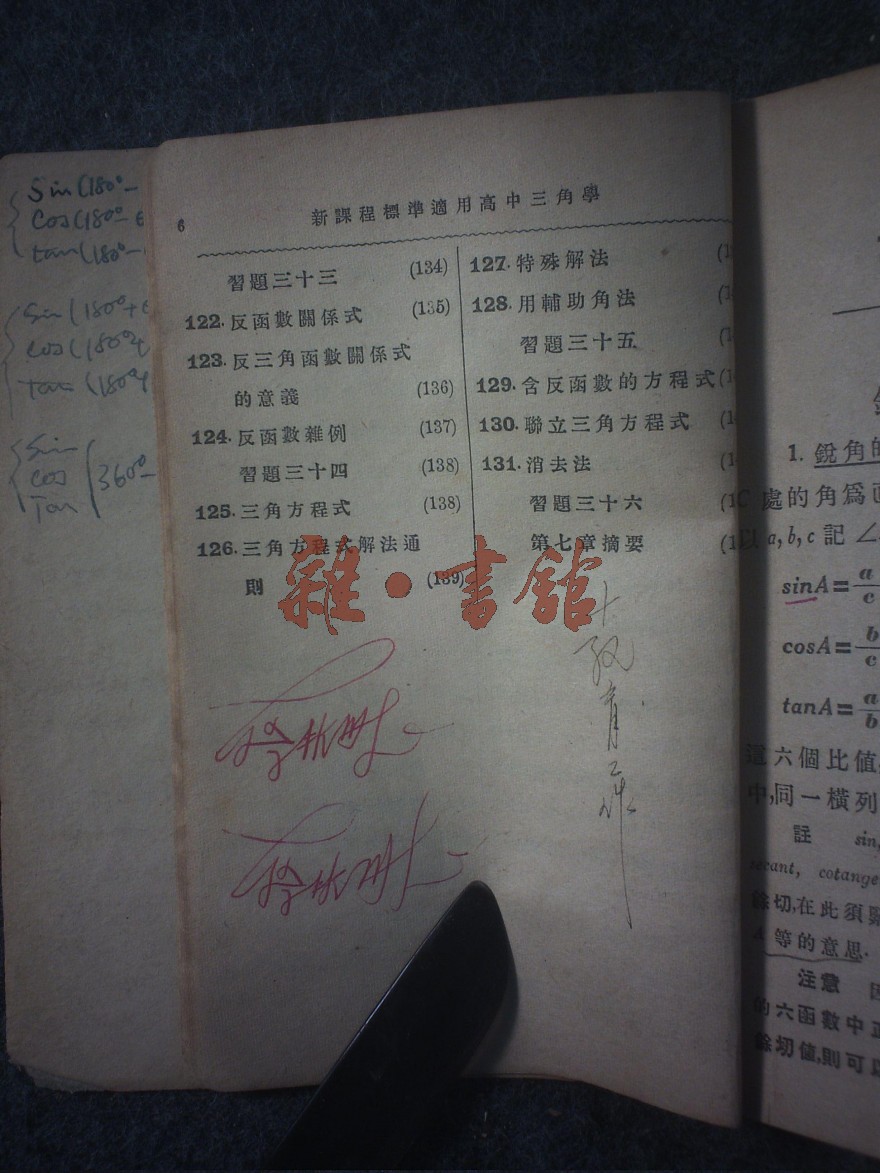 Sin (180°-
Cos (180°-θ
tan (180°-
Sin (180°+θ
Cos (180°+
Tan (180°+
Sin
Cos
Tan
(360°-
6
新課程標準適用高中三角學
習題三十三 (134)
122. 反函數關係式 (135)
123. 反三角函數關係式
的意義 (136)
124. 反函數雜例 (137)
習題三十四 (138)
125. 三角方程式 (138)
126. 三角方程式解法通
則 (139)
127. 特殊解法
128. 用輔助角法
習題三十五
129. 含反函數的方程式
130. 聯立三角方程式
131. 消去法
習題三十六
第七章摘要
雜·書館
1. 銳角的
處的角爲直
以 a, b, c 記 ∠
sinA = a/c
cosA = b/c
tanA = a/b
這六個比值
中,同一橫列
註 sin,
secant, cotange
餘切,在此須
A 等的意思.
注意 因
的六函數中正
餘切值,則可以